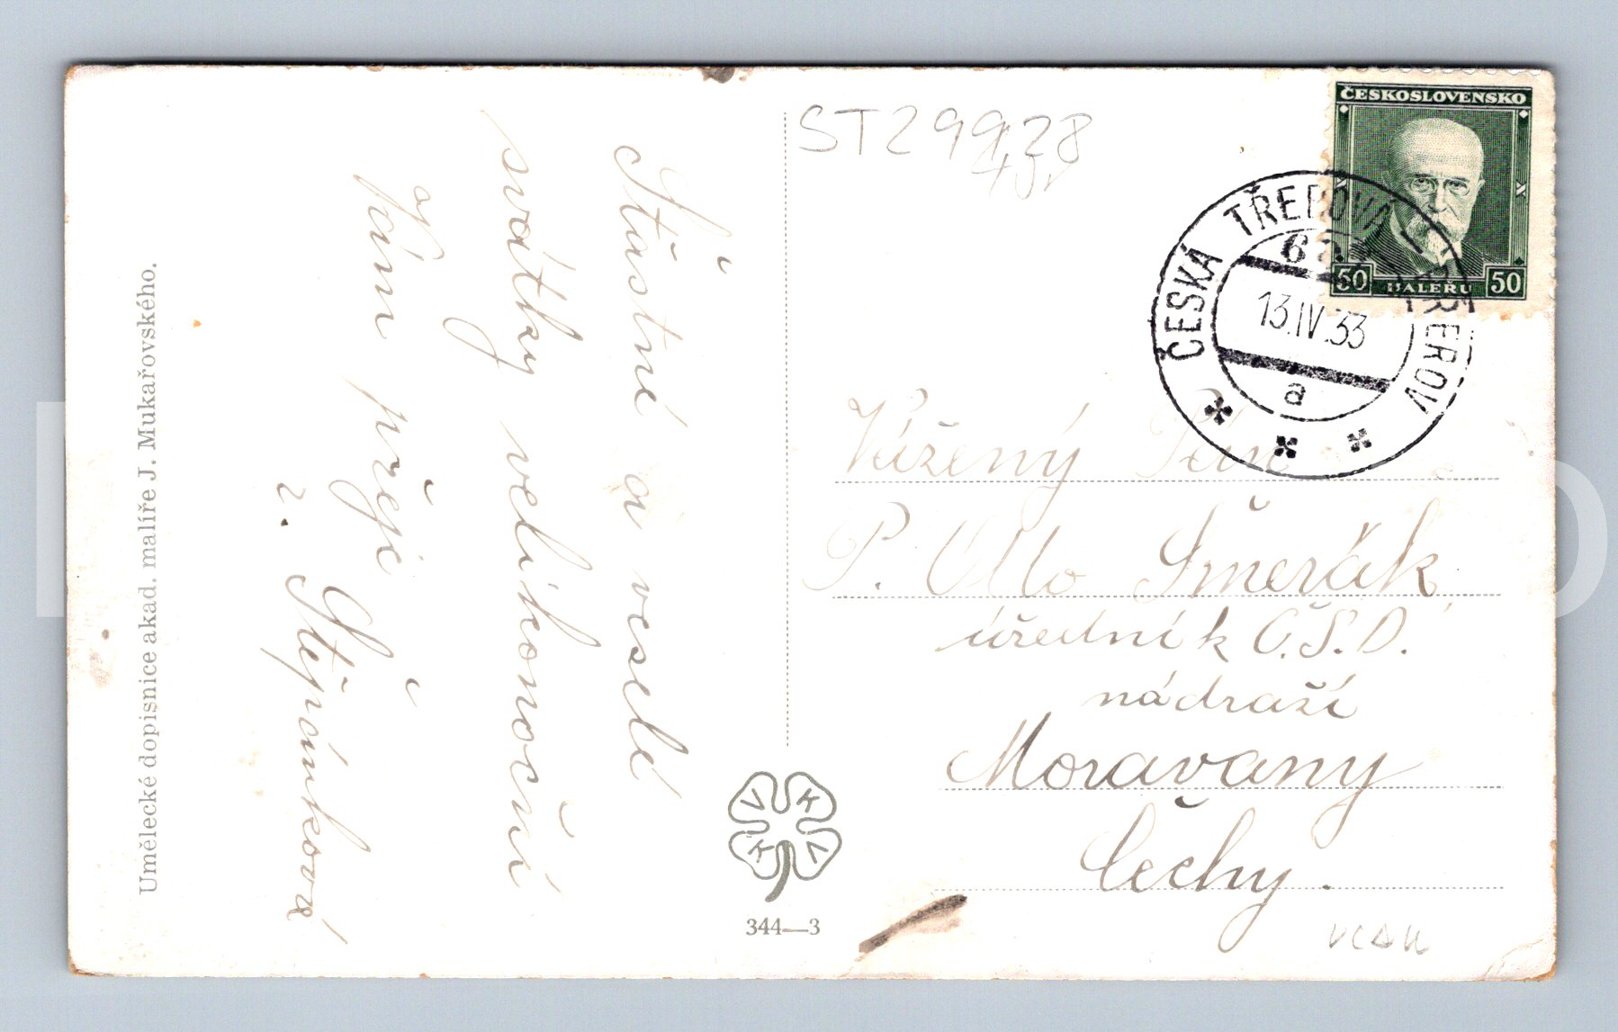 Umělecké dopisnice akad. malíře J. Mukařovského.
Šťastné a veselé
svátky velikonoční
Vám přeje
r. Štěpánková
VKKV
344—3
ST299,28
ČESKOSLOVENSKO
50 HALÉŘŮ 50
ČESKÁ TŘEBOVÁ - PŘEROV
13.IV.33
a
Vážený Pan
P. Otto Šmerák
úředník Č.S.D.
nádraží
Moravany
Čechy.